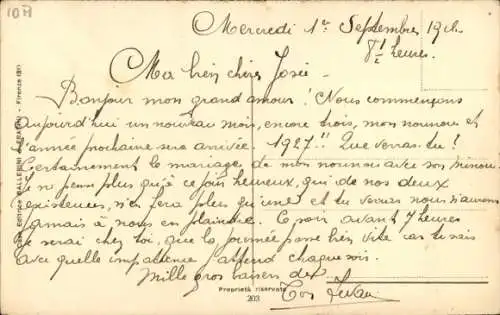 10A
Mercredi 1er Septembre 1926
8 h 1/2 heures.
Ma bien chère Josée -
Bonjour mon grand amour ! Nous commençons
aujourd'hui un nouveau mois, encore trois, mon nounou et
l'année prochaine sera arrivée. 1927 !! Que verras-tu ?
Certainement le mariage de mon nounou avec son
je ne pense plus qu'à ce jour heureux, qui de nos deux
existences, n'en fera plus qu'une et tu verras nous n'aurons
jamais à nous en plaindre. Ce soir avant 7 heures
je serai chez toi, que la journée passe bien vite car tu sais
avec quelle impatience j'attend chaque soir.
Mille gros baisers de
Ton
Proprietà riservata
203
Editrice BALLERINI & FRATINI - Firenze